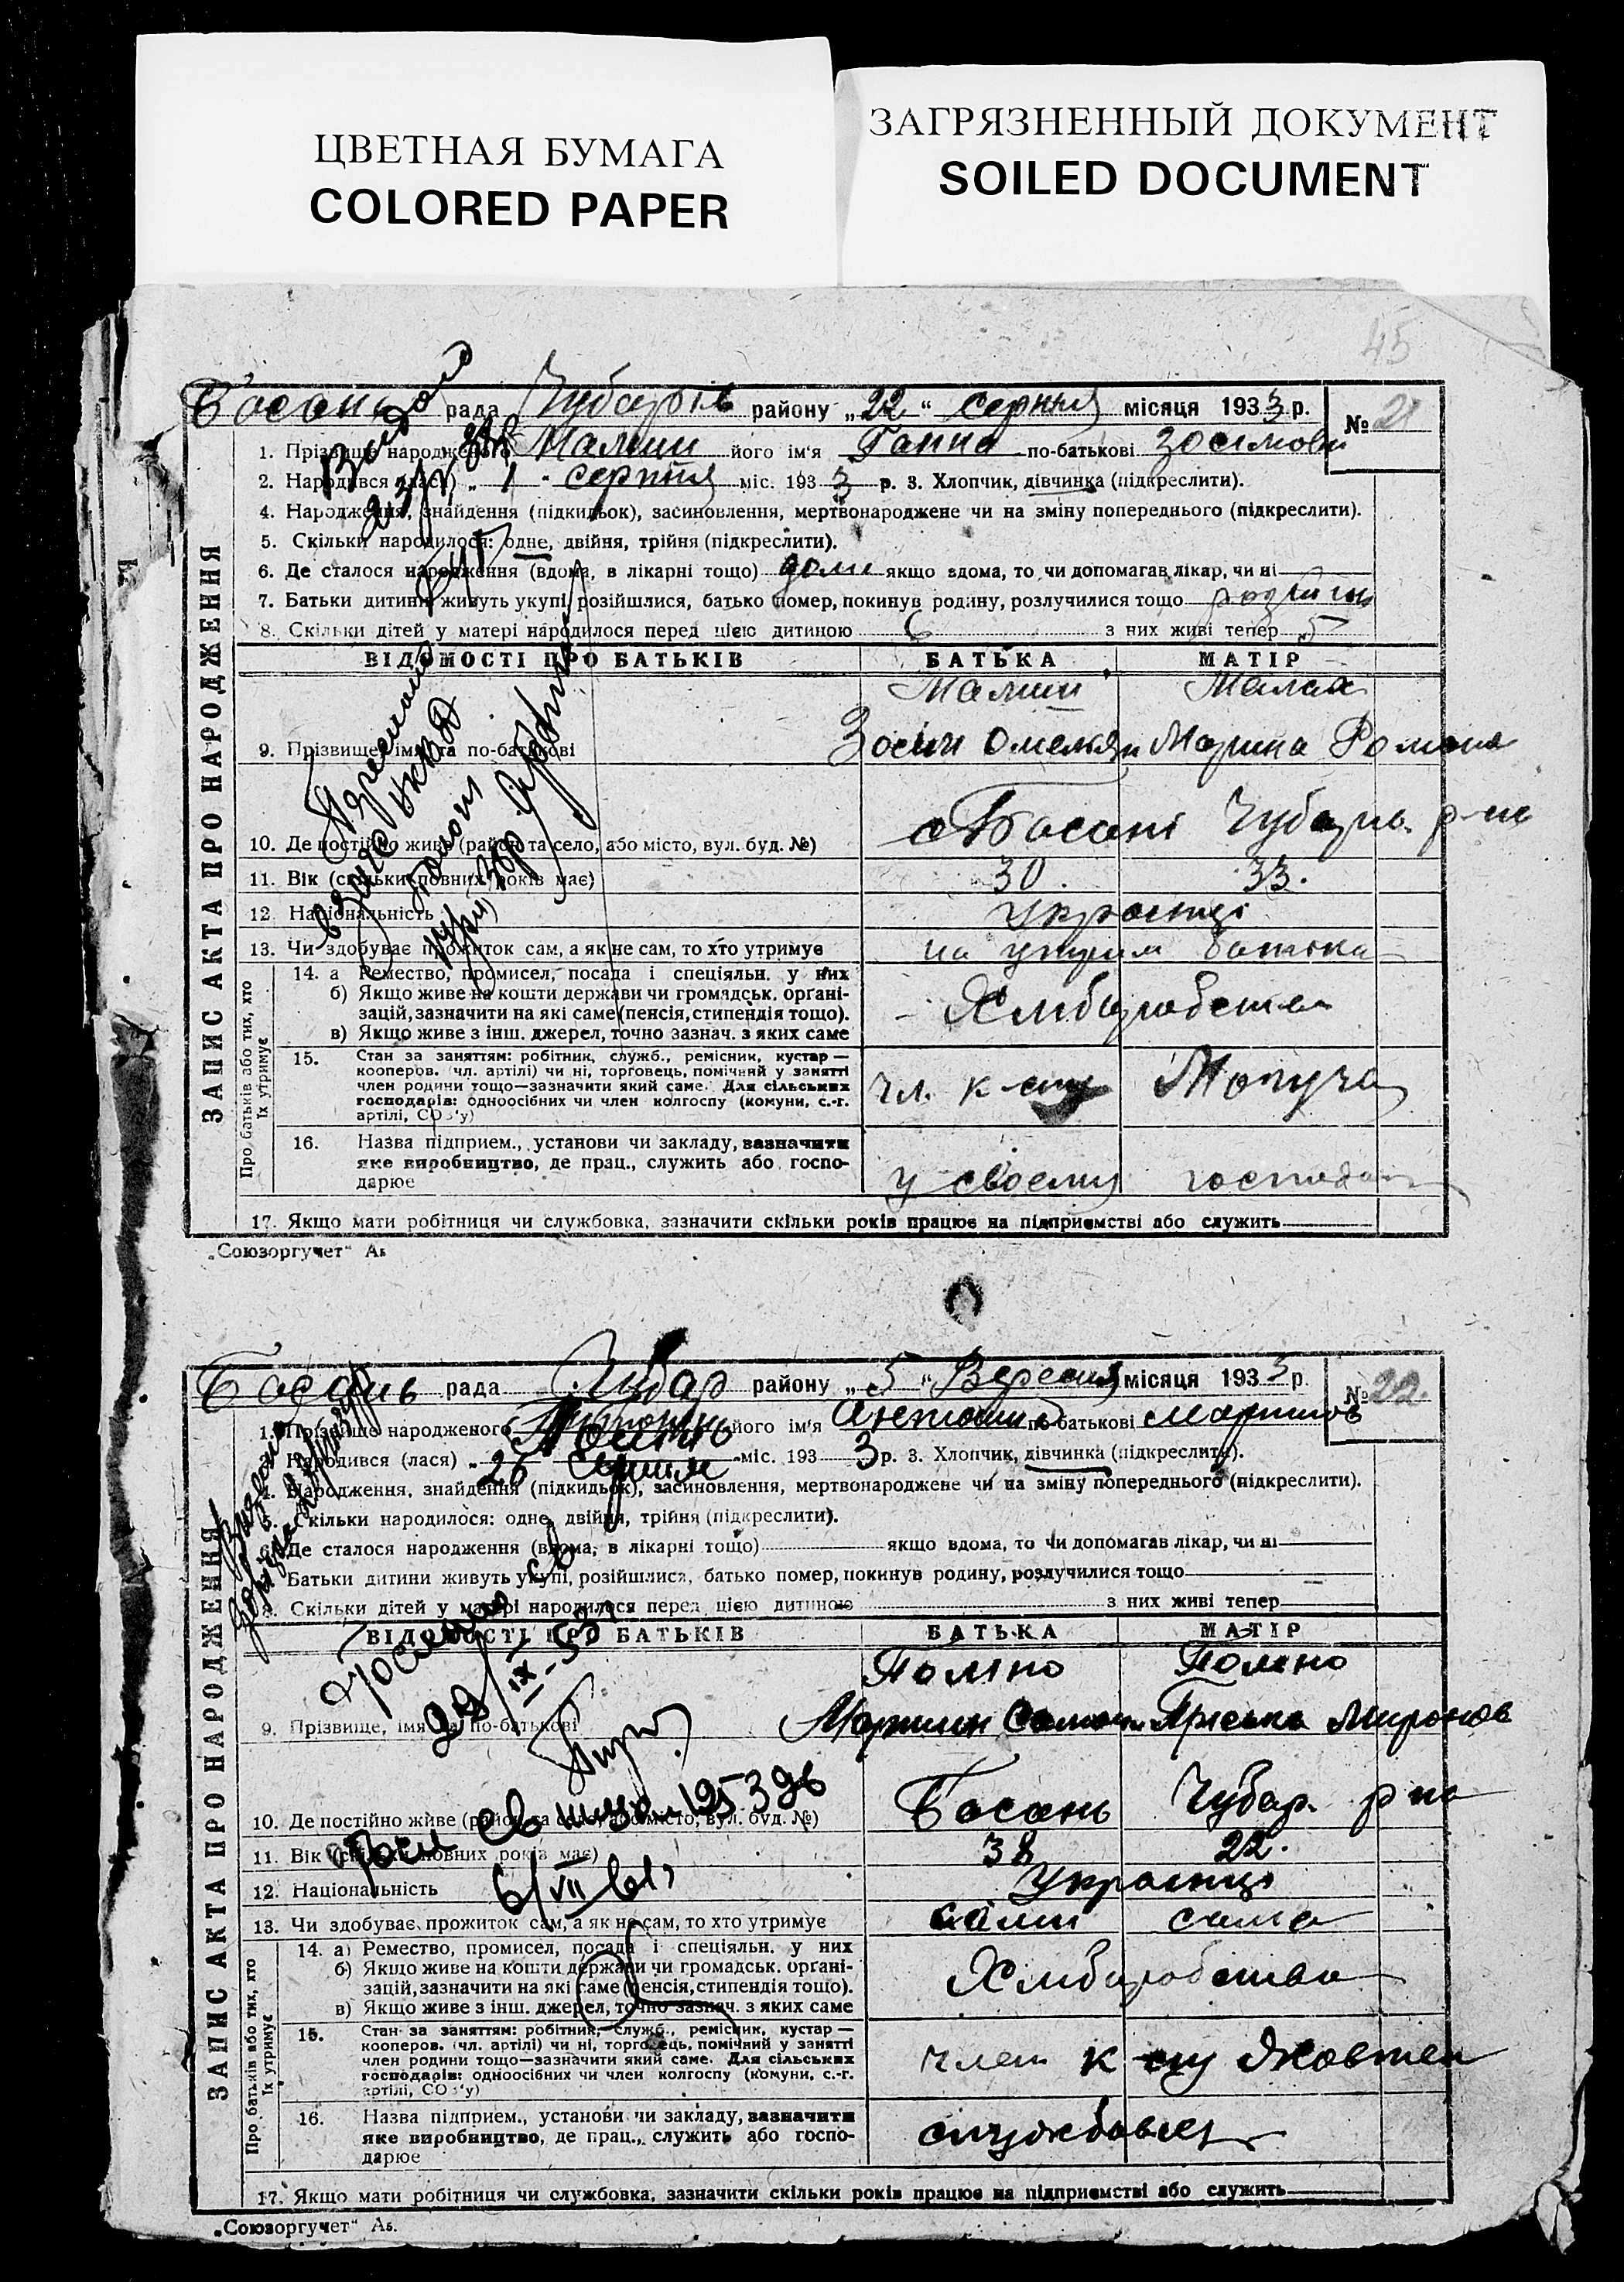 ЦВЕТНАЯ БУМАГА
COLORED PAPER
ЗАГРЯЗНЕННЫЙ ДОКУМЕНТ
SOILED DOCUMENT
45
Басань рада Чубарів району „22“ серпня місяця 1933 р. № 21
1. Прізвище народженого Малий його ім'я Ганна по-батькові Зосімовн
2. Народився (лася) „1“ серпня міс. 1933 р. 3. Хлопчик, дівчинка (підкреслити).
4. Народження, знайдення (підкидьок), засиновлення, мертвонароджене чи на зміну попереднього (підкреслити).
5. Скільки народилося: одне, двійня, трійня (підкреслити).
6. Де сталося народження (вдома, в лікарні тощо) дома якщо вдома, то чи допомагав лікар, чи ні
7. Батьки дитини живуть укупі, розійшлися, батько помер, покинув родину, розлучилися тощо
8. Скільки дітей у матері народилося перед цією дитиною 6 з них живі тепер 5
ВІДОМОСТІ ПРО БАТЬКІВ БАТЬКА МАТІР
Малий Малая
9. Прізвище, ім'я та по-батькові Зосим Омелян Марина Романа
10. Де постійно живе (район та село, або місто, вул. буд. №) с Басані Чубарів. р-на
11. Вік (скільки повних років має) 30 33.
12 Національність Українці
13. Чи здобуває прожиток сам, а як не сам, то хто утримує на утрим батька
14. а Ремество, промисел, посада і спеціяльн. у них
б) Якщо живе на кошти держави чи громадськ. органі-
зацій, зазначити на які саме (пенсія, стипендія тощо).
в) Якщо живе з інш. джерел, точно зазнач. з яких саме
Хліборобство
15. Стан за заняттям: робітник, служб., ремісник, кустар —
кооперов. (чл. артілі) чи ні, торговець, помічний у занятті
член родини тощо—зазначити який саме. Для сільських
господарів: одноосібних чи член колгоспу (комуни, с.-г.
артілі, СОЗ'у)
чл. к-спу
16. Назва підприєм., установи чи закладу, зазначити
яке виробництво, де прац., служить або госпо-
дарює
у своєму господар
17. Якщо мати робітниця чи службовка, зазначити скільки років працює на підприємстві або служить
ЗАПИС АКТА ПРО НАРОДЖЕННЯ
Про батьків або тих, хто
їх утримує
„Союзоргучет“ Аб
Басань рада Чубар району „5“ Вересня місяця 1933 р. № 22.
1. Прізвище народженого його ім'я по-батькові Мартинов
2. Народився (лася) 26 Серпня міс. 1933 р. 3. Хлопчик, дівчинка (підкреслити).
4. Народження, знайдення (підкидьок), засиновлення, мертвонароджене чи на зміну попереднього (підкреслити).
5. Скільки народилося: одне, двійня, трійня (підкреслити).
6. Де сталося народження (вдома, в лікарні тощо) якщо вдома, то чи допомагав лікар, чи ні
Батьки дитини живуть укупі, розійшлися, батько помер, покинув родину, розлучилися тощо
8. Скільки дітей у матері народилося перед цією дитиною з них живі тепер
ВІДОМОСТІ ПРО БАТЬКІВ БАТЬКА МАТІР
9. Прізвище, імя та по-батькові Мартин Самой Пріська Миронов
10. Де постійно живе (район та село, або місто, вул. буд. №) Басань Чубар. р на
11. Вік (скільки повних років має) 38 22.
12. Національність Українці
13. Чи здобуває прожиток сам, а як не сам, то хто утримує сами сама
14. а) Ремество, промисел, посада і спеціяльн. у них
б) Якщо живе на кошти держави чи громадськ. органі-
зацій, зазначити на які саме (пенсія, стипендія тощо).
в) Якщо живе з інш. джерел, точно зазнач. з яких саме
Хліборобство
15. Стан за заняттям: робітник, служб., ремісник, кустар —
кооперов. (чл. артілі) чи ні, торговець, помічний у занятті
член родини тощо—зазначити який саме. Для сільських
господарів: одноосібних чи член колгоспу (комуни, с.-г.
артілі, СОЗ'у)
член к-спу Жовтен
16. Назва підприєм., установи чи закладу, зазначити
яке виробництво, де прац., служить або госпо-
дарює
17. Якщо мати робітниця чи службовка, зазначити скільки років працює на підприємстві або служить
ЗАПИС АКТА ПРО НАРОДЖЕННЯ
Про батьків або тих, хто
їх утримує
„Союзоргучет“ Аб.